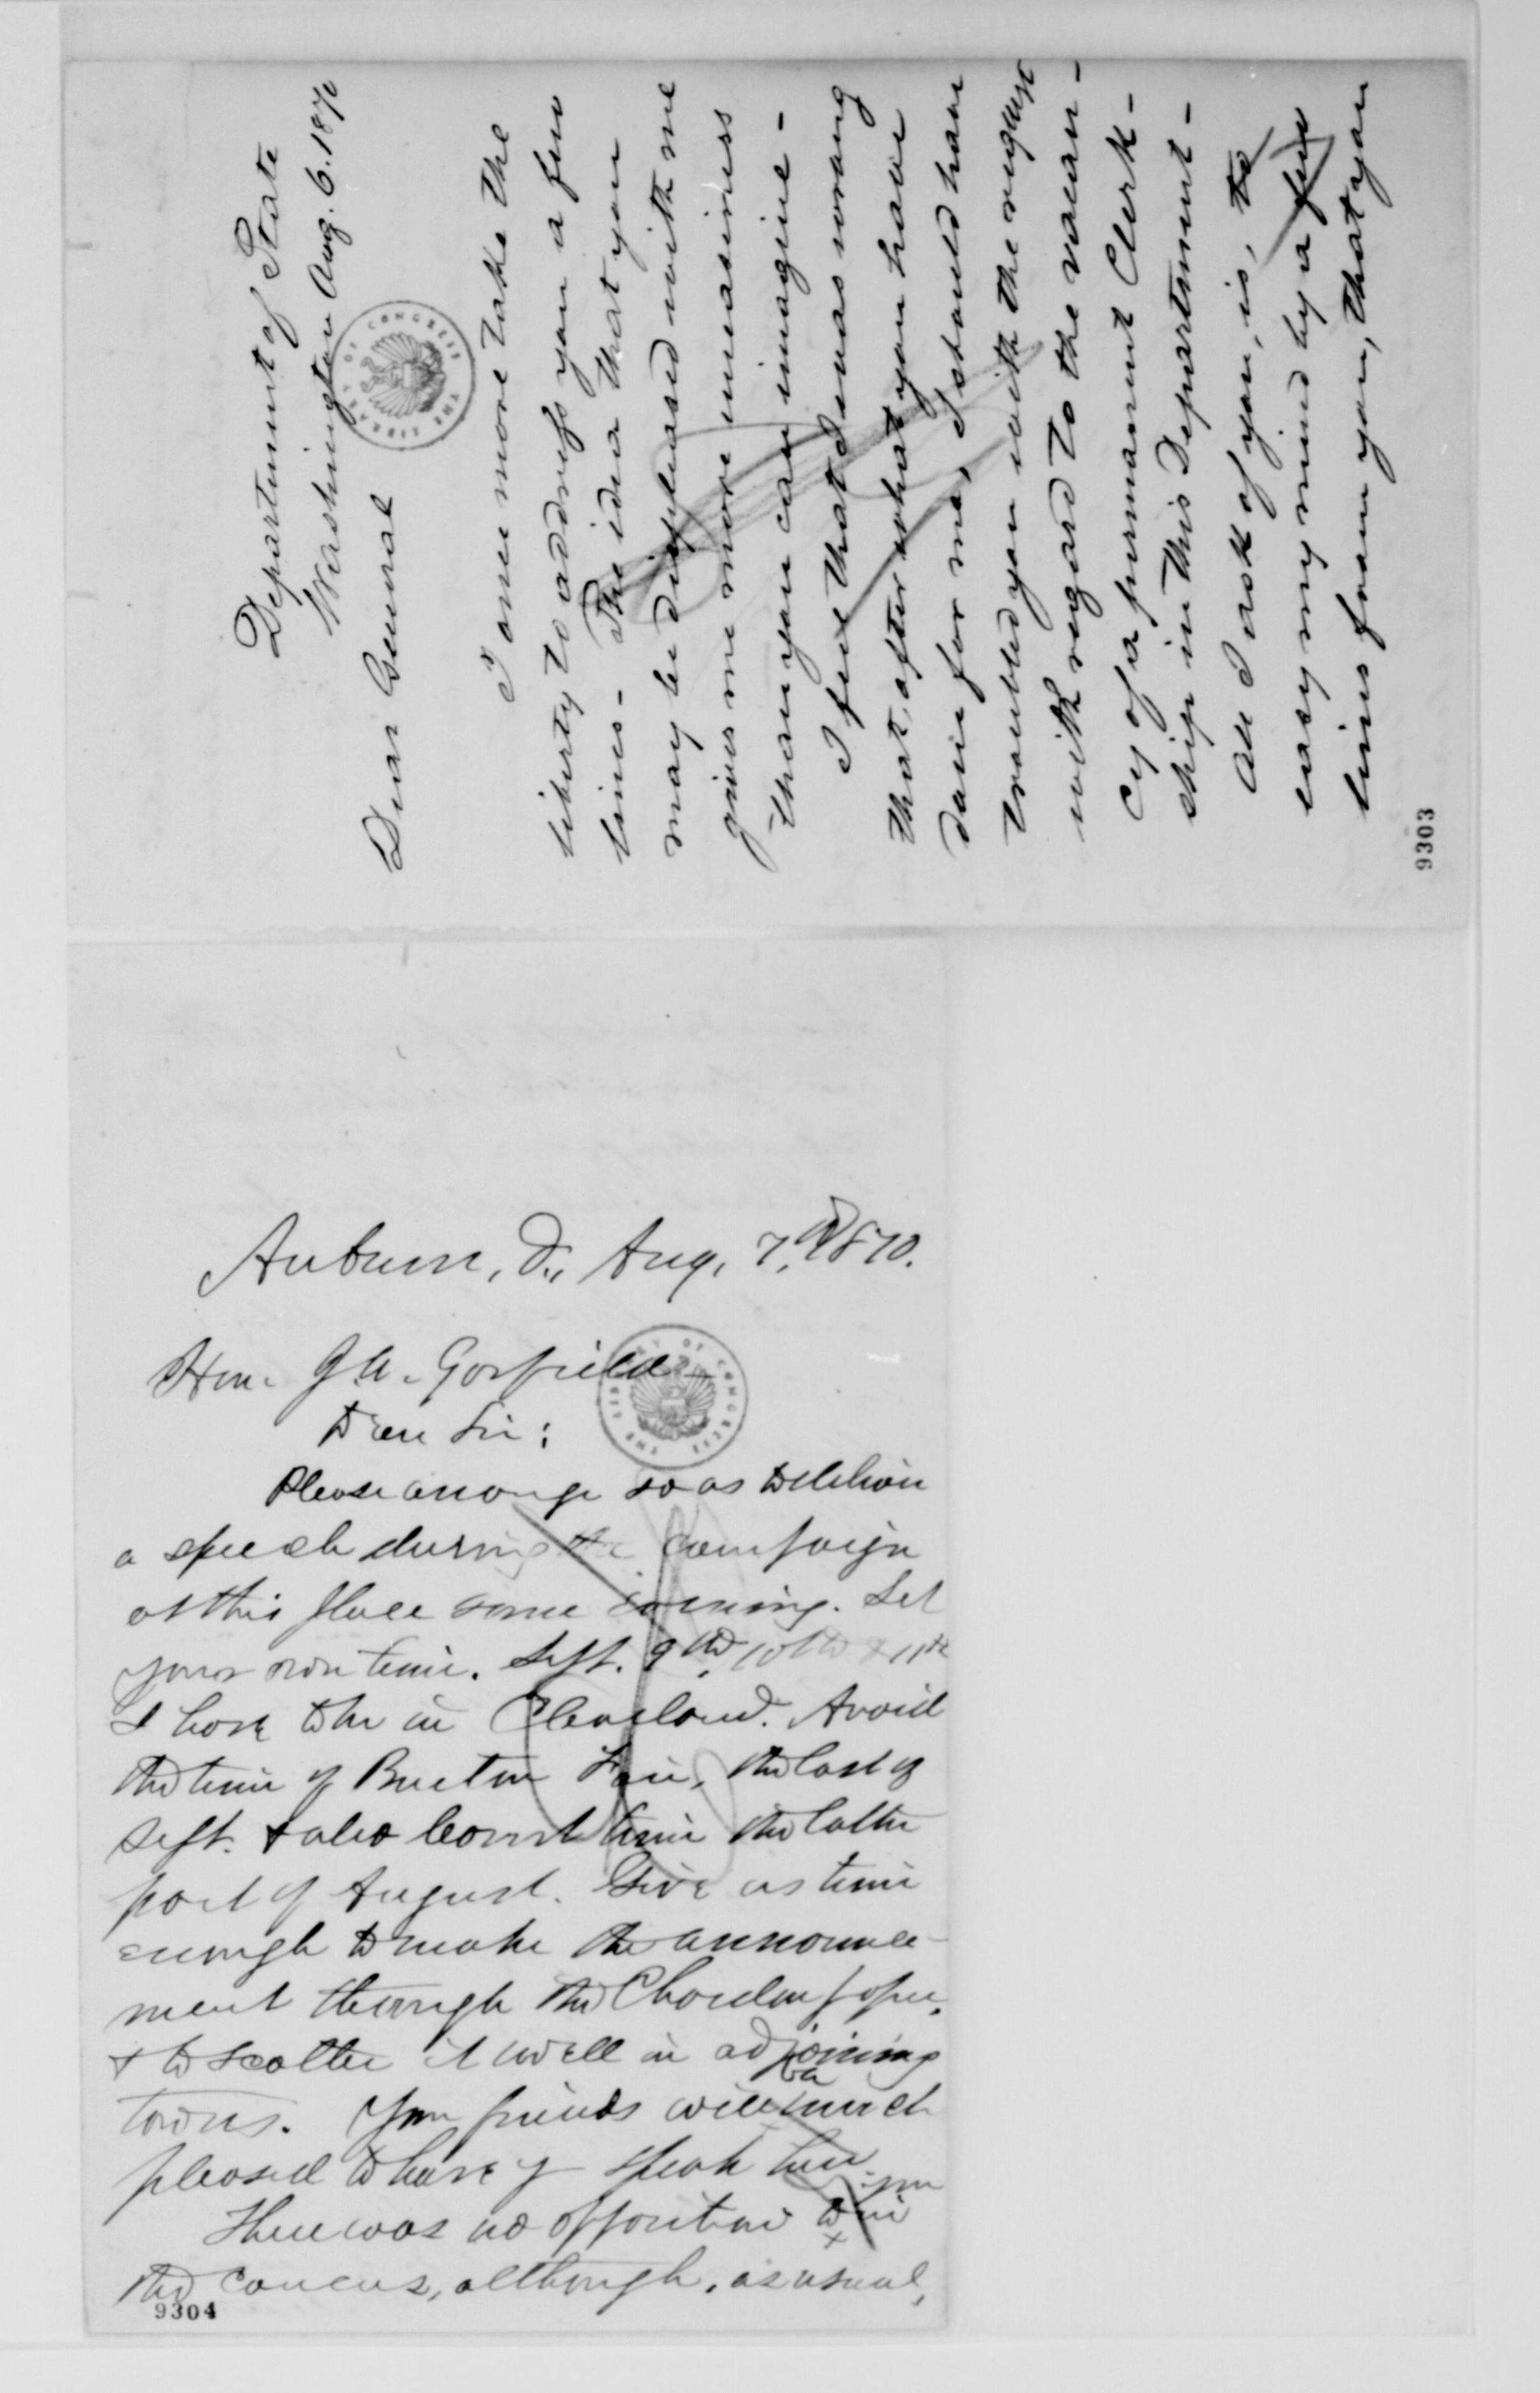 Department of State
Washington Aug. 6. 1870
Dear General
I once more take the
liberty to address you a few
lines - The idea that you
may be displeased with me
gives me more uneasiness
than you can imagine -
I feel that I was wrong
that, after what you have
done for me, I should have
troubled you with the request
with regard to the vacan-
cy of a permanent Clerk-
ship in this Department -
All I ask of you, is, to
easy my mind by a few
lines from you, that you
9303
THE LIBRARY OF CONGRESS
Auburn, O., Aug. 7, 1870.
Hon. J. A. Garfield -
Dear Sir:
Please arrange so as to deliver
a speech during the campaign
at this place some evening. Set
your own time. Sept. 9th, 10th & 11th
I have to be in Cleveland. Avoid
the time of Burton Fair, the last of
Sept. & also Court time the latter
part of August. Give us time
enough to make the announce-
ment through the Chardon paper,
& to scatter it well in adjoining
towns. Your friends will be much
pleased to have y speak here.
There was no opposition to you in
the caucus, although, as usual,
9304
THE LIBRARY OF CONGRESS